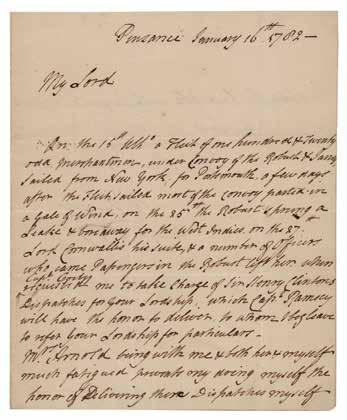 Penzance January 16th 1782 —
My Lord
On the 15th Ulto a Fleet of one hundred & Twenty
odd Merchantmen, under Convoy of the Robust & Janus
Sailed from New York, for Portsmouth, a few days
after the Fleet sailed most of the Convoy parted in
a Gale of Wind, on the 25th the Robust sprung a
Leake & boreaway for the West Indies, on the 27th
Lord Cornwallis his suite, & a number of Officers
who came Passengers in the Robust left her when
requested me to take Charge of Sir Henry Clintons
Dispatches for Your Lordship, which Capt Ramsey
will have the honor to deliver to whom I beg leave
to refer Your Lordship for particulars. —
Mrs Arnold being with me & both her & myself
much fatigued prevents my doing myself the
honor of Delivering these Dispatches myself